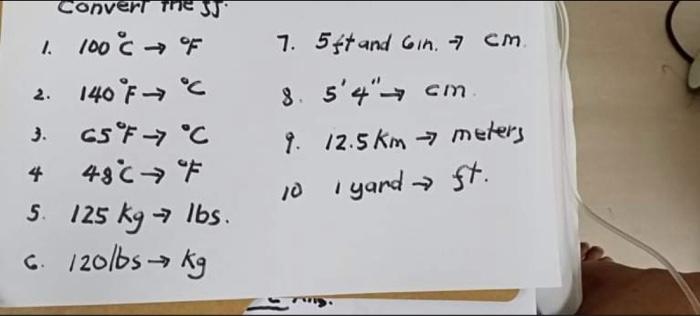 Convert the ff.
1. 100°C → °F
2. 140°F → °C
3. 65°F → °C
4 48°C → °F
5. 125 kg → lbs.
6. 120lbs → kg
7. 5ft and 6in. → cm.
8. 5'4" → cm.
9. 12.5 Km → meters
10 1 yard → ft.